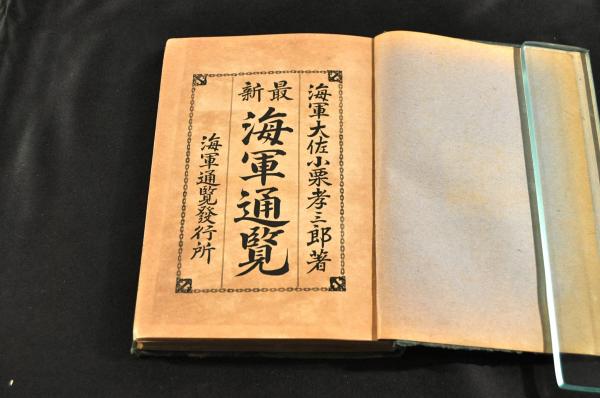 海軍大佐小栗孝三郎著
最新
海軍通覽
海軍通覽發行所